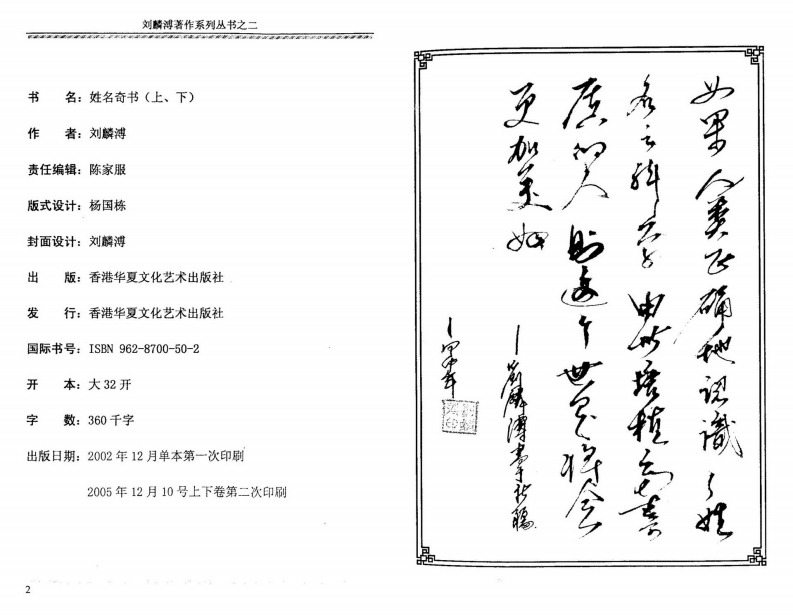 刘麟溥著作系列丛书之二
书 名：姓名奇书（上、下）
作 者：刘麟溥
责任编辑：陈家服
版式设计：杨国栋
封面设计：刘麟溥
出 版：香港华夏文化艺术出版社
发 行：香港华夏文化艺术出版社
国际书号：ISBN 962-8700-50-2
开 本：大 32 开
字 数：360 千字
出版日期：2002 年 12 月单本第一次印刷
2005 年 12 月 10 号上下卷第二次印刷
2
如果人类正确地認識了姓
名之科学由此培植高素
质的人則這个世界将会
更加美好
—劉麟溥書于
—甲申年